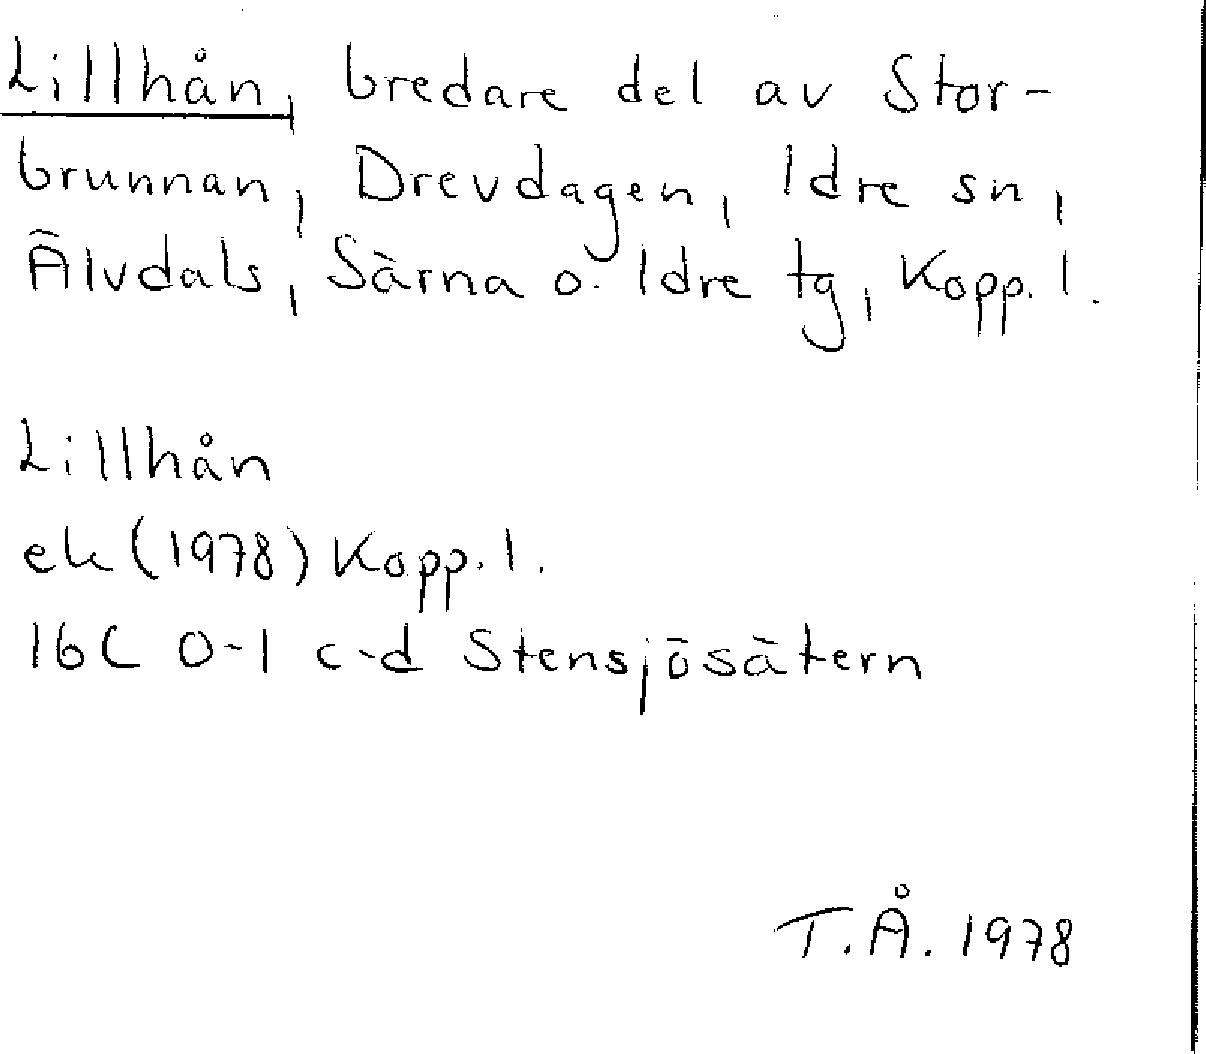 Lillhån, bredare del av Stor-
brunnan, Drevdagen, Idre sn,
Älvdals, Särna o. Idre tg, Kopp. l.
Lillhån
ek (1978) Kopp. l.
16C 0-1 c-d Stensjösätern
T.Å. 1978